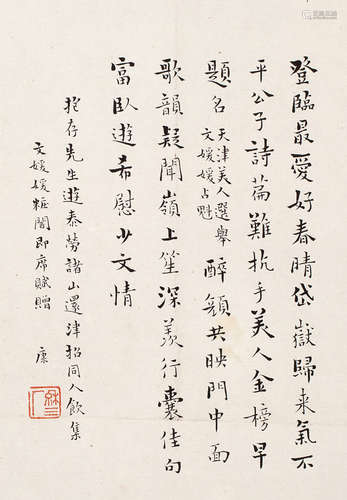 登臨最愛好春晴岱嶽歸來氣不
平公子詩篇難抗手美人金榜早
題名天津美人選舉
文媛媛占魁醉顏共映門中面
歌韻疑聞嶺上笙深羨行囊佳句
富臥遊希慰少文情
抱存先生遊泰勞諸山還津招同人飲集
文媛媛妝閣即席賦贈 康